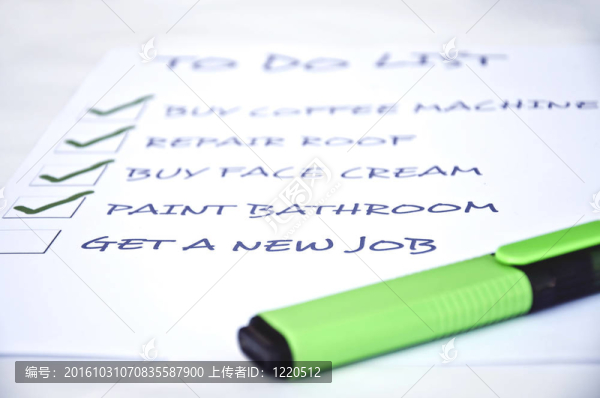 TO DO LIST
BUY COFFEE MACHINE
REPAIR ROOF
BUY FACE CREAM
PAINT BATHROOM
GET A NEW JOB
编号：20161031070835587900 上传者ID：1220512